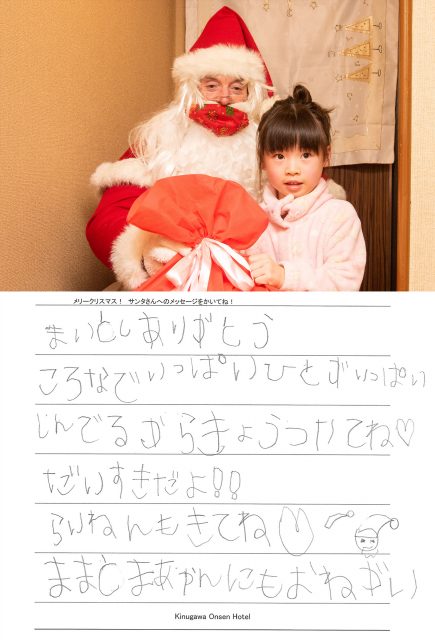 メリークリスマス！ サンタさんへのメッセージをかいてね！
まいとしありがとう
ころなでいっぱいひとがいっぱい
しんでるからきょうつけてね♡
だいすきだよ!!
らいねんもきてね♡
ままとまあかんにもおねがい
Kinugawa Onsen Hotel